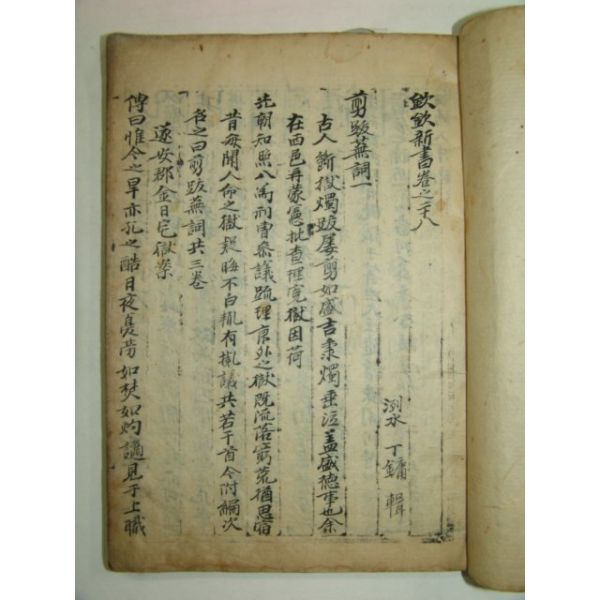 欽欽新書卷之二十八
洌水 丁鏞 輯
剪跋蕪詞一
古人斷獄燭跋屢剪如盛吉秉燭垂泣盖盛德事也余
在西邑再蒙憲批查理寃獄因荷
先朝知照入爲刑曹叅議疏理京外之獄旣流落窮荒猶思宿
昔每聞人命之獄疑晦不白輒有擬議共若干首今附編次
名之曰剪跋蕪詞共三卷
遂安郡金日宅獄案
傳曰惟今之旱亦孔之酷日夜憂勞如焚如灼謫見于上職